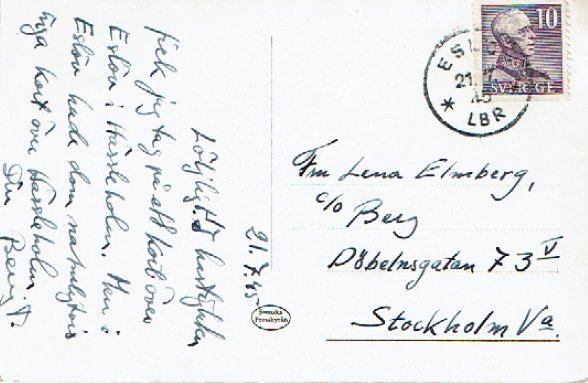 21.7.45
Löjligt. I hastigheten
fick jag tag på ett kort över
Eslöv i Hässleholm. Men i
Eslöv hade dom naturligtvis
inga kort över Hässleholm
Din Bengt.
Svenska
Pressbyrån
10
SVERIGE
21 7
45
LBR
Frn Lena Elmberg,
c/o Berg
Döbelnsgatan 73 V
Stockholm Va.